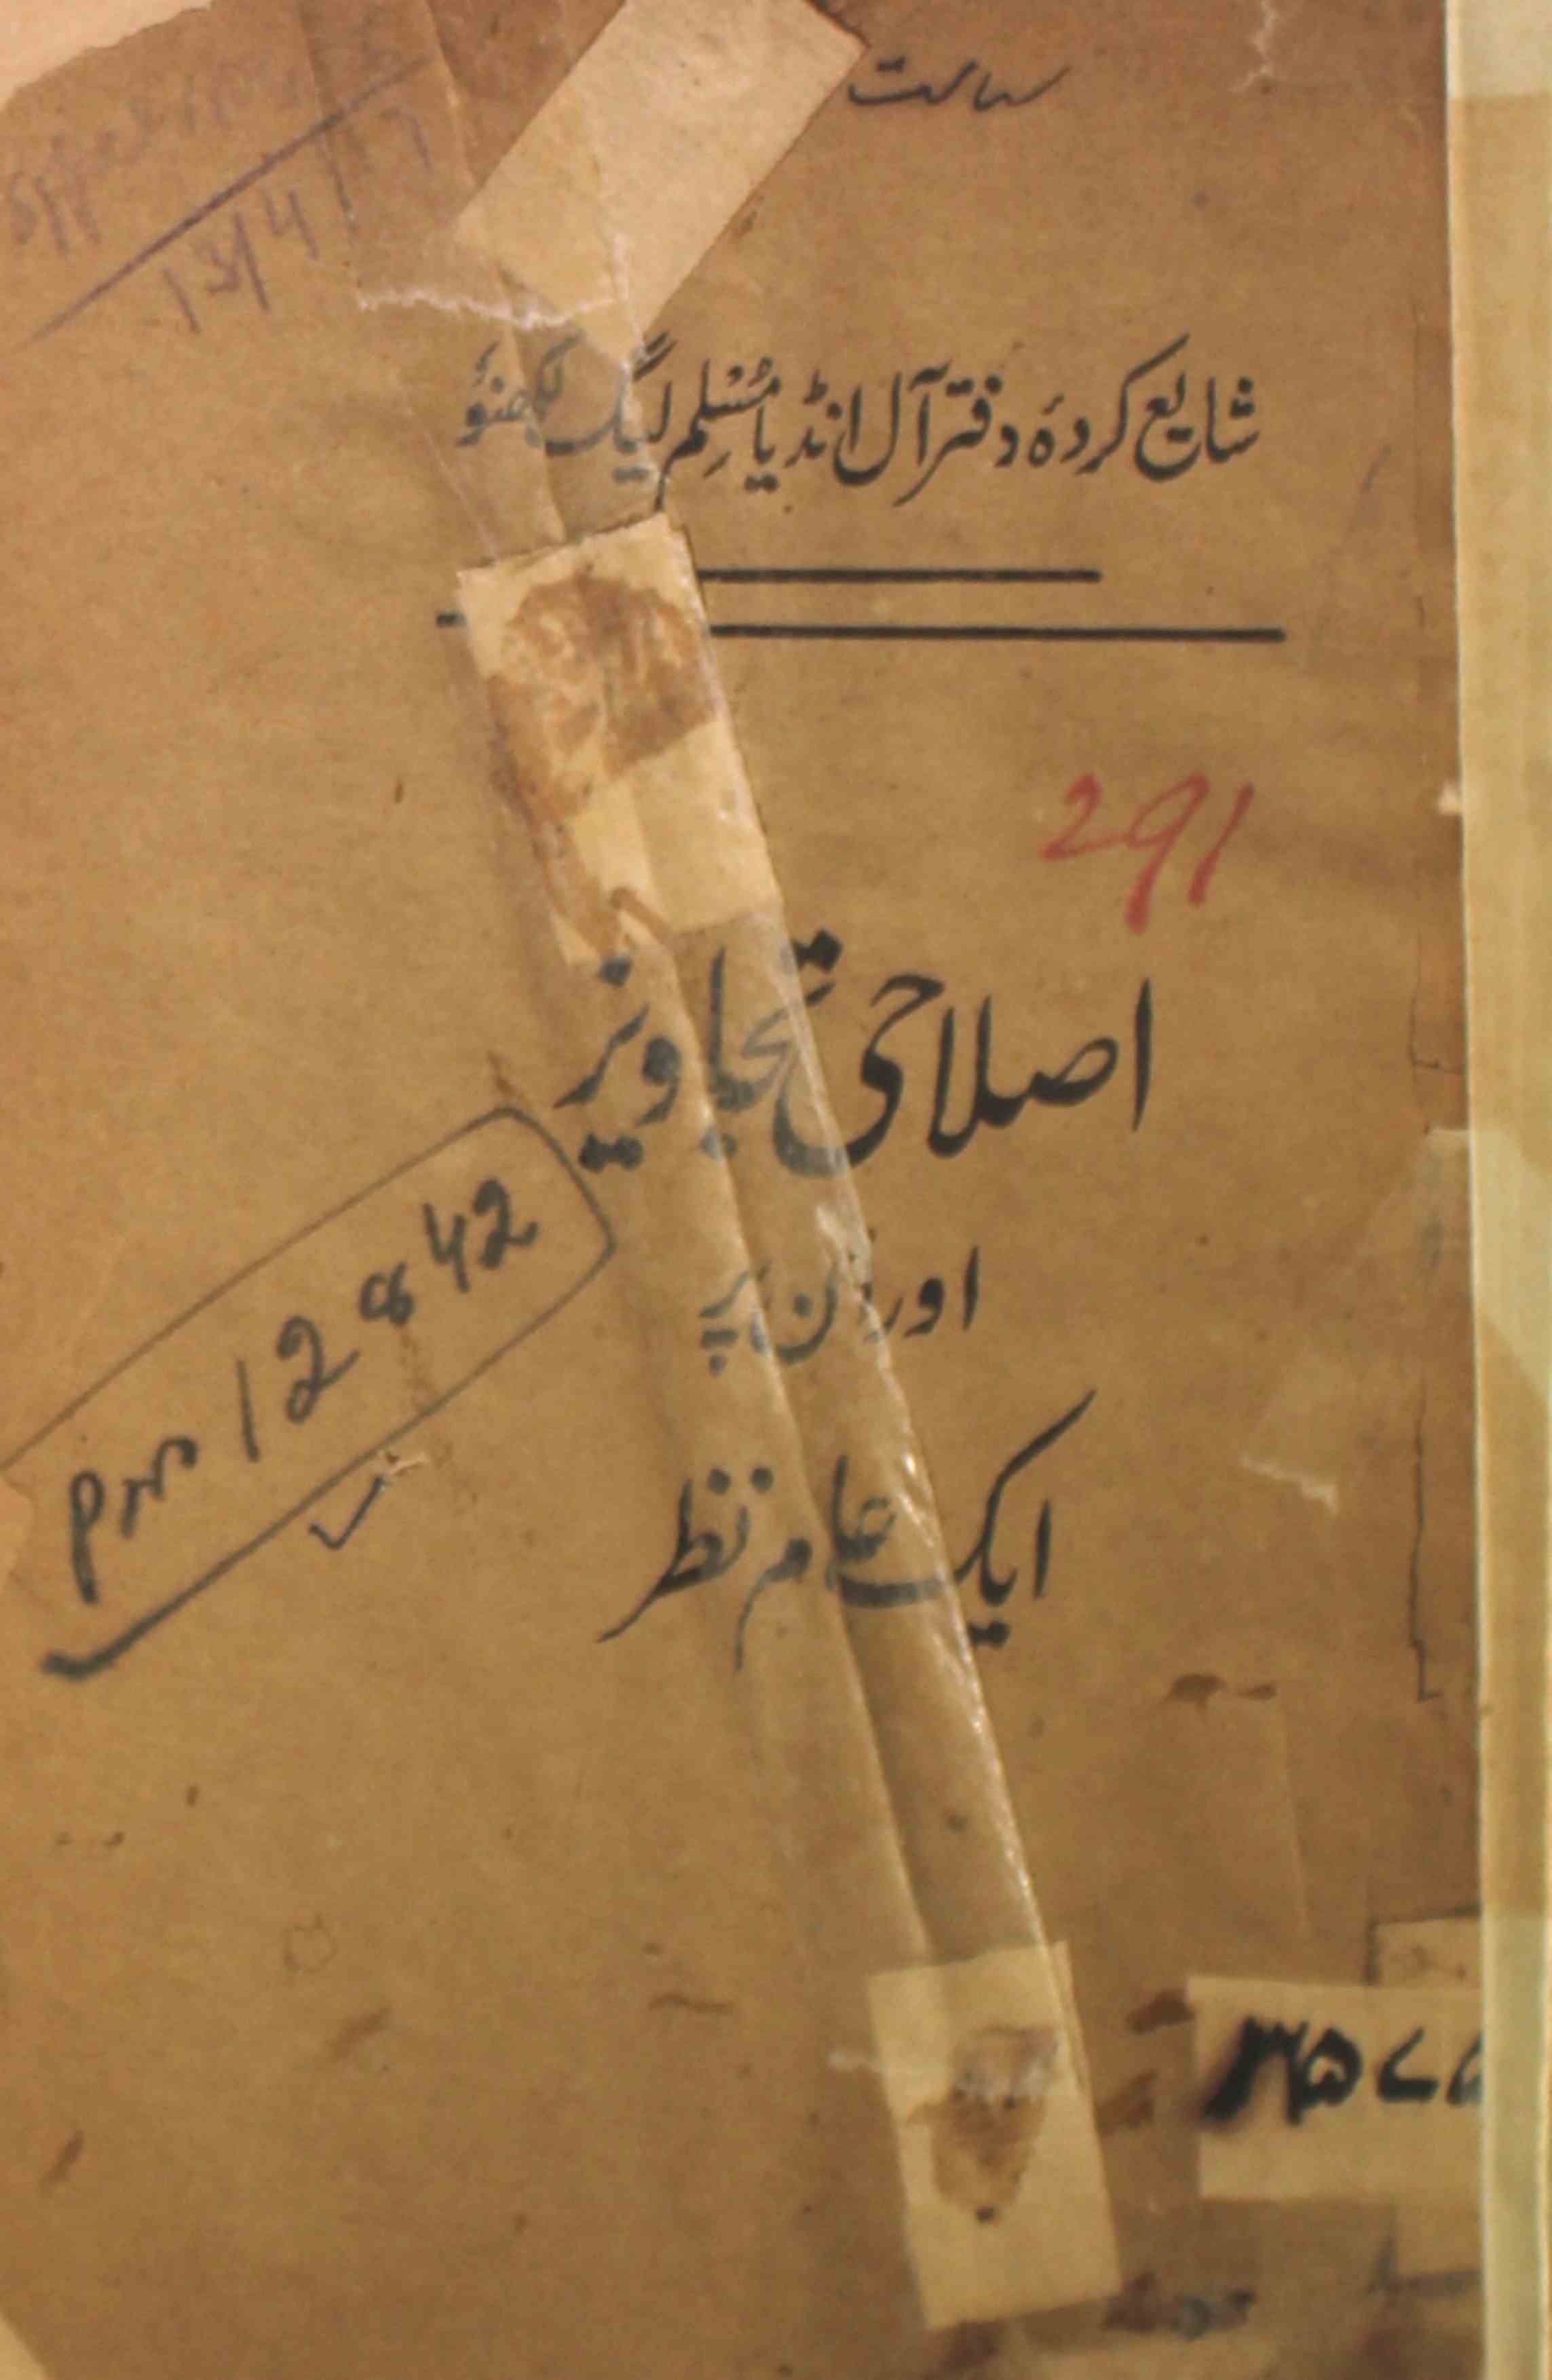 سیاست
شایع کردہ دفتر آل انڈیا مُسْلِم لیگ لکھنؤ
291
اصلاحی تجاویز
اور ان پر
ایک عام نظر
12842